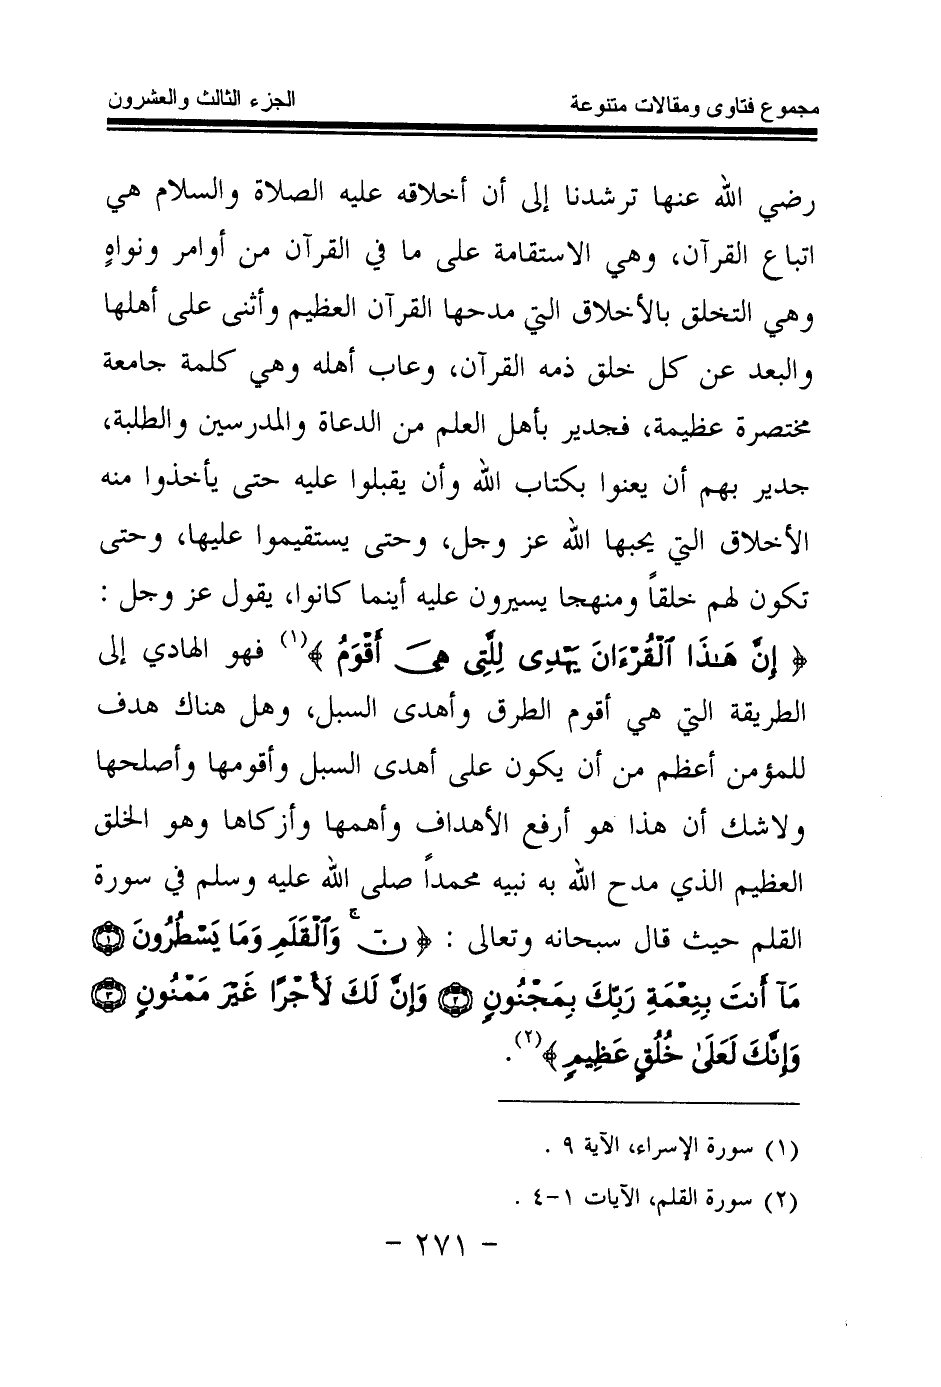 مجموع فتاوى ومقالات متنوعة الجزء الثالث والعشرون
رضي الله عنها ترشدنا إلى أن أخلاقه عليه الصلاة والسلام هي
اتباع القرآن، وهي الاستقامة على ما في القرآن من أوامر ونواهٍ
وهي التخلق بالأخلاق التي مدحها القرآن العظيم وأثنى على أهلها
والبعد عن كل خلق ذمه القرآن، وعاب أهله وهي كلمة جامعة
مختصرة عظيمة، فجدير بأهل العلم من الدعاة والمدرسين والطلبة،
جدير بهم أن يعنوا بكتاب الله وأن يقبلوا عليه حتى يأخذوا منه
الأخلاق التي يحبها الله عز وجل، وحتى يستقيموا عليها، وحتى
تكون لهم خلقاً ومنهجا يسيرون عليه أينما كانوا، يقول عز وجل :
﴿ إِنَّ هَـٰذَا ٱلْقُرْءَانَ يَهْدِى لِلَّتِى هِىَ أَقْوَمُ ﴾(١) فهو الهادي إلى
الطريقة التي هي أقوم الطرق وأهدى السبل، وهل هناك هدف
للمؤمن أعظم من أن يكون على أهدى السبل وأقومها وأصلحها
ولاشك أن هذا هو أرفع الأهداف وأهمها وأزكاها وهو الخلق
العظيم الذي مدح الله به نبيه محمداً صلى الله عليه وسلم في سورة
القلم حيث قال سبحانه وتعالى : ﴿ نٓ ۚ وَٱلْقَلَمِ وَمَا يَسْطُرُونَ ١
مَآ أَنتَ بِنِعْمَةِ رَبِّكَ بِمَجْنُونٍ ٢ وَإِنَّ لَكَ لَأَجْرًا غَيْرَ مَمْنُونٍ ٣
وَإِنَّكَ لَعَلَىٰ خُلُقٍ عَظِيمٍ ﴾(٢).
(١) سورة الإسراء، الآية ٩ .
(٢) سورة القلم، الآيات ١-٤ .
- ٢٧١ -